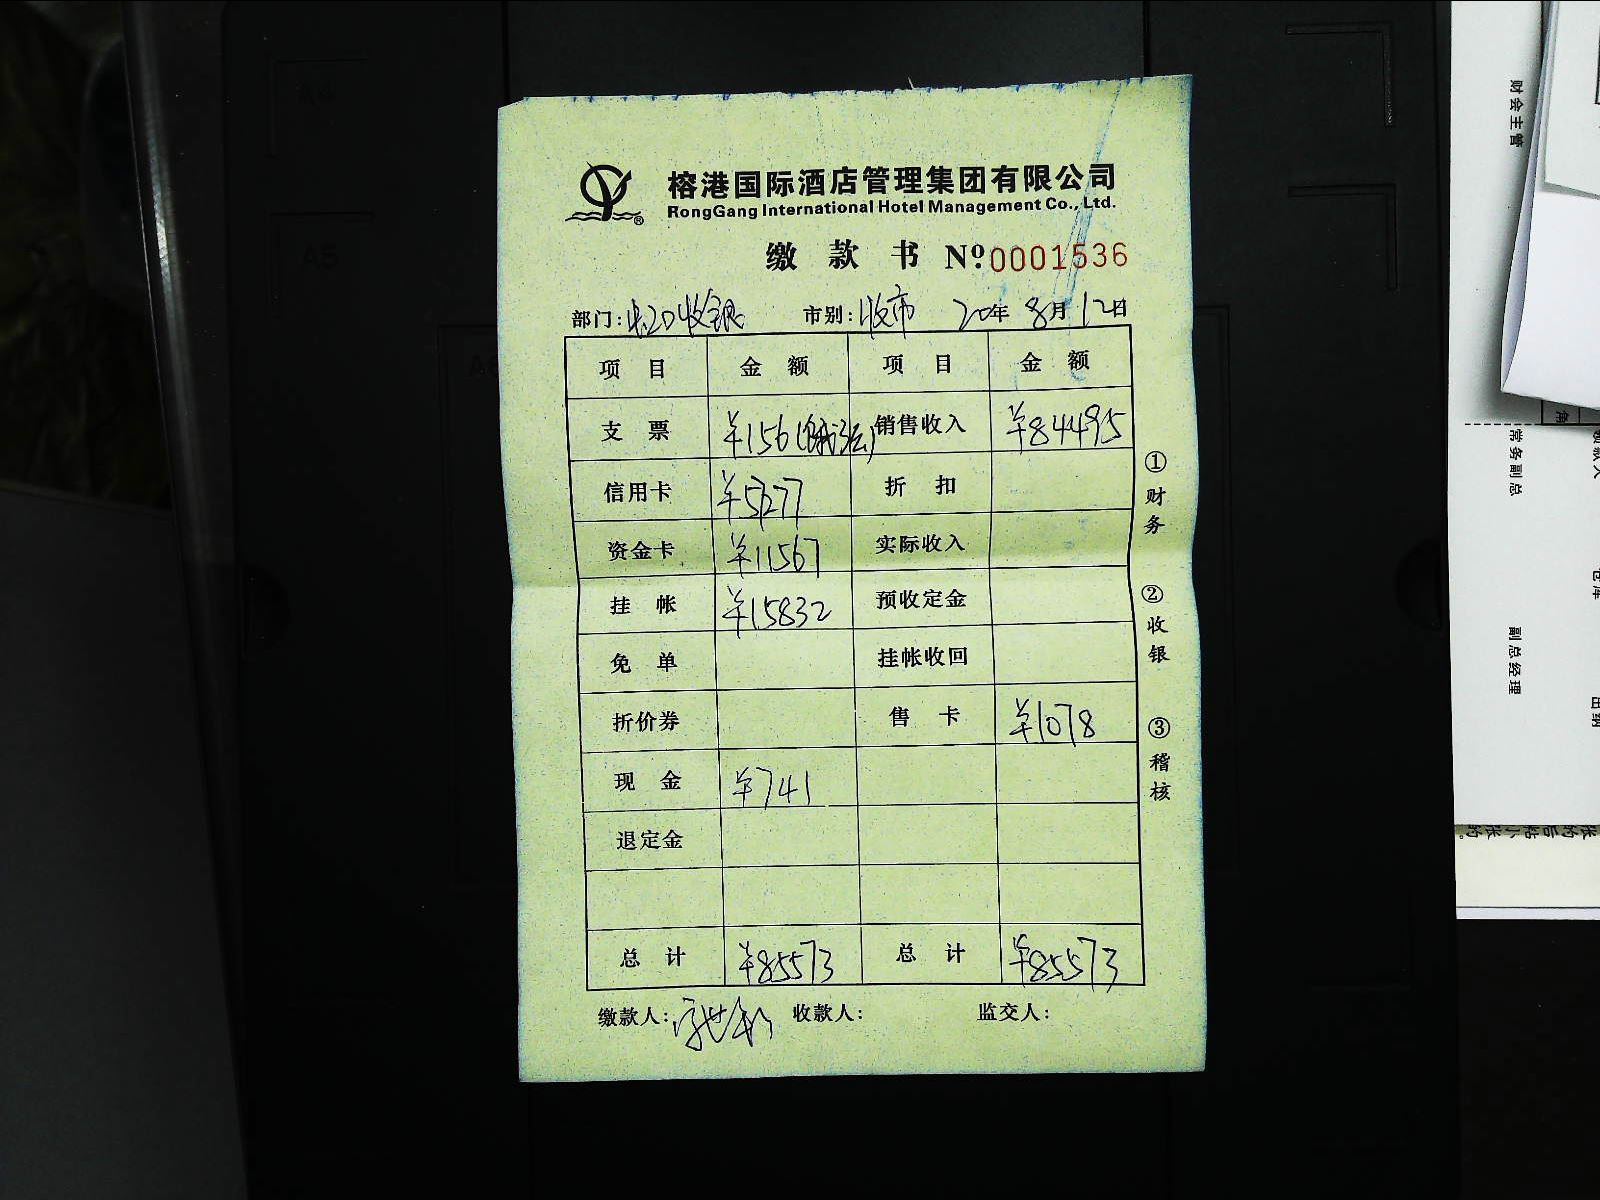 榕港国际酒店管理集团有限公司
RongGang International Hotel Management Co., Ltd.
缴款书 Nº 0001536
部门: 收银 市别: 收市 20年 8月 12日
项目 金额 项目 金额
支票 ¥156 销售收入 ¥84495
信用卡 ¥57277 折扣
资金卡 ¥11567 实际收入
挂帐 ¥15832 预收定金
免单 挂帐收回
折价券 售卡 ¥1078
现金 ¥741
退定金
总计 ¥85573 总计 ¥85573
缴款人: 收款人: 监交人:
①财务 ②收银 ③稽核
财会主管
常务副总
副总经理
A4
A5